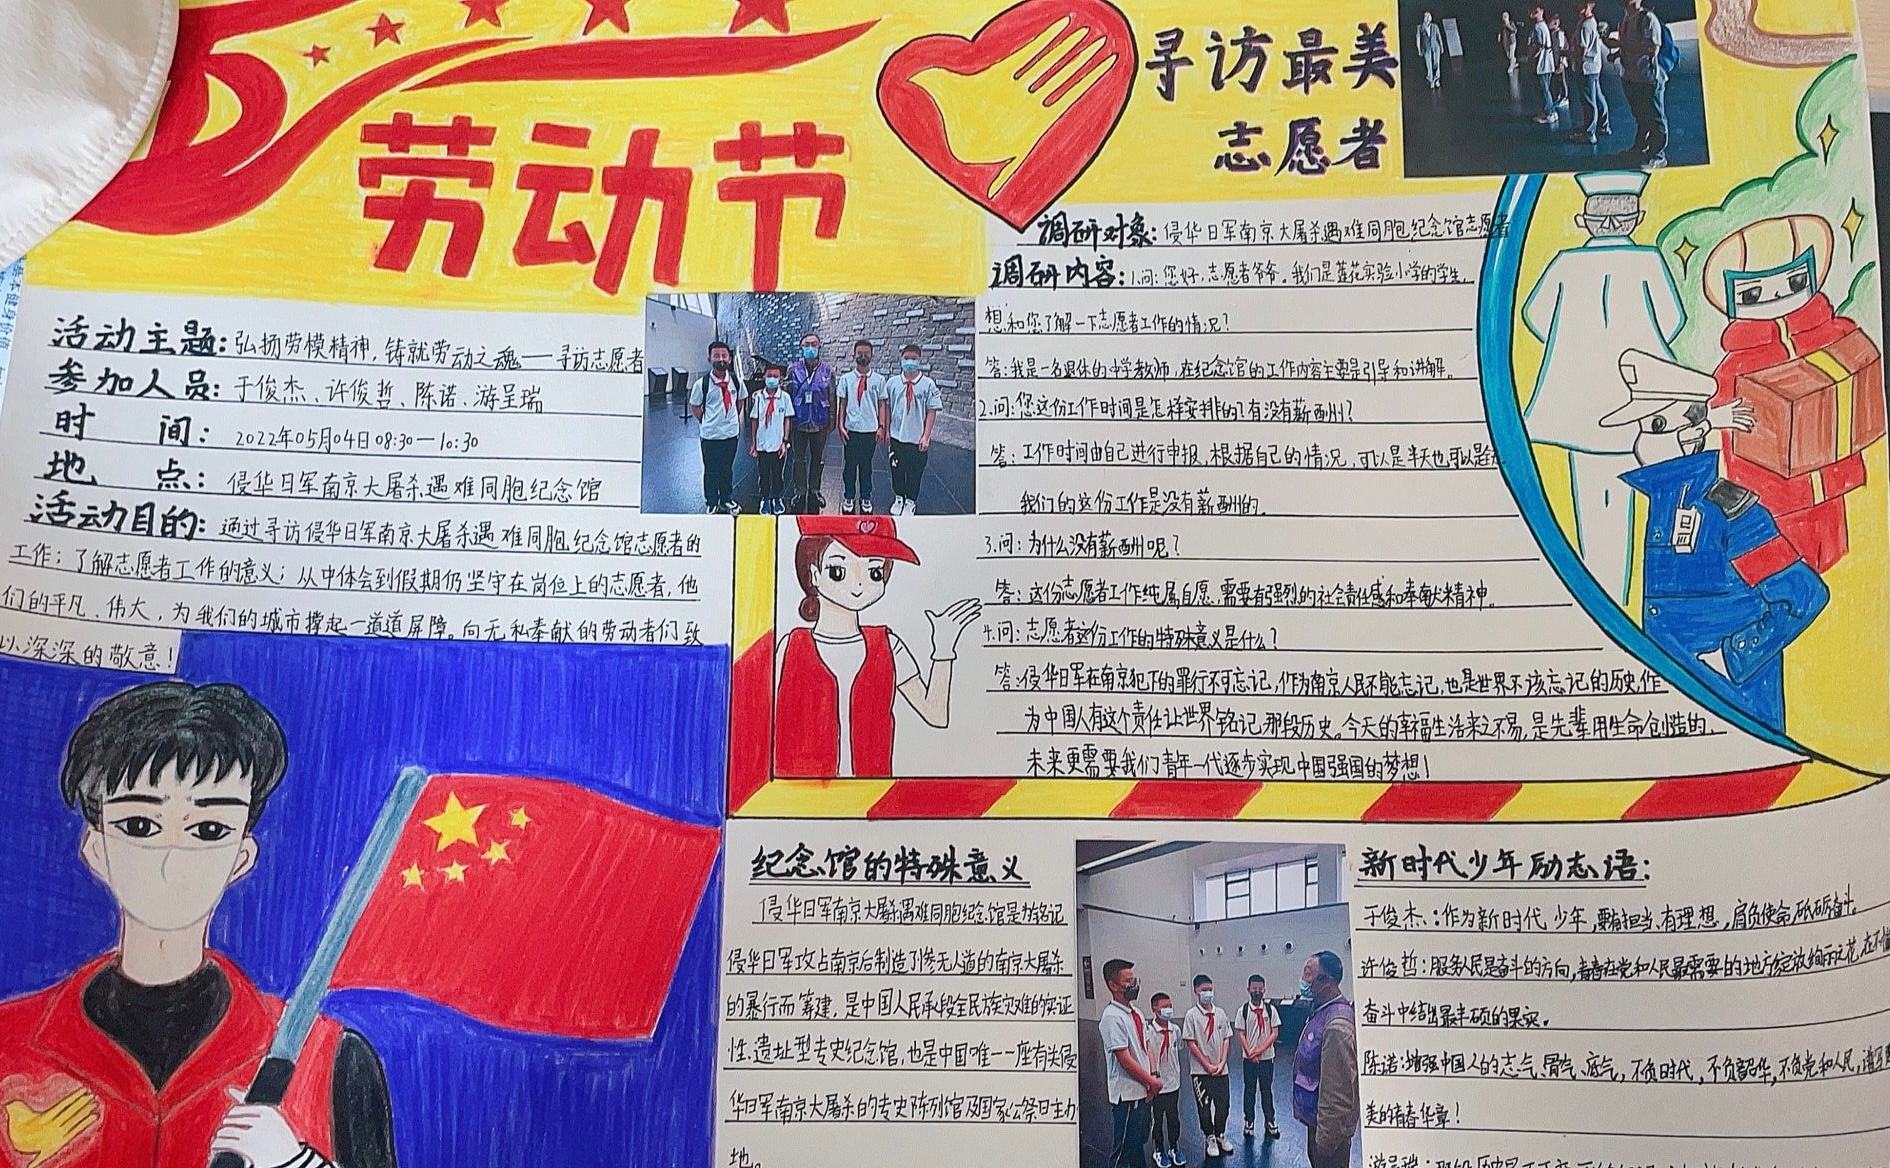 劳动节
寻访最美
志愿者
活动主题：弘扬劳模精神，铸就劳动之魂——寻访志愿者
参加人员：于俊杰、许俊哲、陈诺、游呈瑞
时间：2022年05月04日08:30—10:30
地点：侵华日军南京大屠杀遇难同胞纪念馆
活动目的：通过寻访侵华日军南京大屠杀遇难同胞纪念馆志愿者的
工作；了解志愿者工作的意义；从中体会到假期仍坚守在岗位上的志愿者，他
们的平凡、伟大，为我们的城市撑起一道道屏障。向无私奉献的劳动者们致
以深深的敬意！
调研对象：侵华日军南京大屠杀遇难同胞纪念馆志愿者
调研内容：1.问：您好，志愿者爷爷。我们是莲花实验小学的学生，
想和您了解一下志愿者工作的情况？
答：我是一名退休的中学教师，在纪念馆的工作内容主要是引导和讲解。
2.问：您这份工作时间是怎样安排的？有没有薪酬？
答：工作时间由自己进行申报，根据自己的情况，可以是半天也可以是
我们的这份工作是没有薪酬的。
3.问：为什么没有薪酬呢？
答：这份志愿者工作纯属自愿，需要有强烈的社会责任感和奉献精神。
4.问：志愿者这份工作的特殊意义是什么？
答：侵华日军在南京犯下的罪行不可忘记，作为南京人民不能忘记，也是世界不该忘记的历史，作
为中国人有这个责任让世界铭记那段历史。今天的幸福生活来之不易，是先辈用生命创造的，
未来更需要我们青年一代逐步实现中国强国的梦想！
纪念馆的特殊意义
侵华日军南京大屠杀遇难同胞纪念馆是为铭记
侵华日军攻占南京后制造了惨无人道的南京大屠杀
的暴行而筹建，是中国人民承段全民族灾难的实证
性、遗址型专史纪念馆，也是中国唯一一座有关侵
华日军南京大屠杀的专史陈列馆及国家公祭日主办
地。
新时代少年励志语：
于俊杰：作为新时代少年，要有担当、有理想，肩负使命，砥砺奋斗。
许俊哲：服务人民是奋斗的方向，青春在党和人民最需要的地方绽放绚丽之花，在不懈
奋斗中结出最丰硕的果实。
陈诺：增强中国人的志气、骨气、底气，不负时代，不负韶华，不负党和人民，
美的青春华章！
游呈瑞：那段历史是